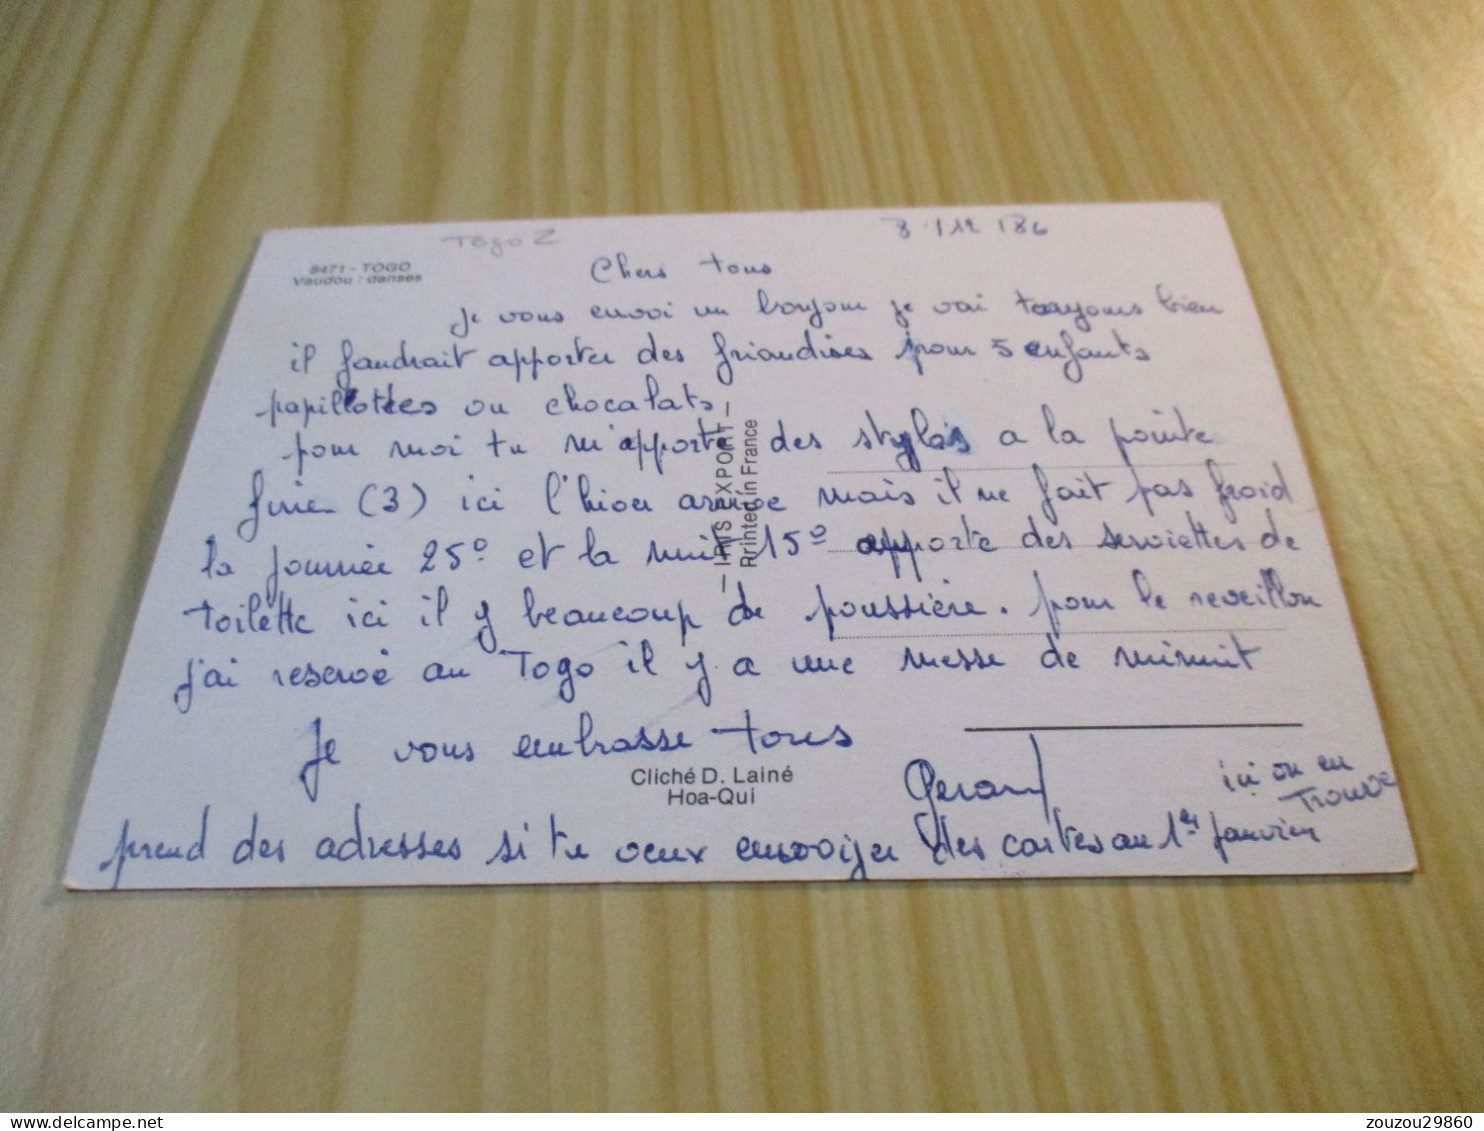 Togo Z
8/12/86
8471 - TOGO
Vaudou : danses
Chers tous
je vous envoi un bonjour je vai toujours bien
il faudrait apporter des friandises pour 5 enfants
papillottes ou chocalats
pour moi tu m'apporte des stylos a la pointe
fine (3) ici l'hiver arrive mais il ne fait pas froid
la journée 25° et la nuit 15° apporte des serviettes de
toilette ici il y beaucoup de poussière. pour le reveillon
j'ai reservé au Togo il y a une messe de minuit
— IRIS EXPORT —
Rrinted in France
Je vous embrasse tous
Cliché D. Lainé
Hoa-Qui
Gerard
prend des adresses si tu veux envoiyer des cartes au 1er janvier
ici on en
trouve
zouzou29860